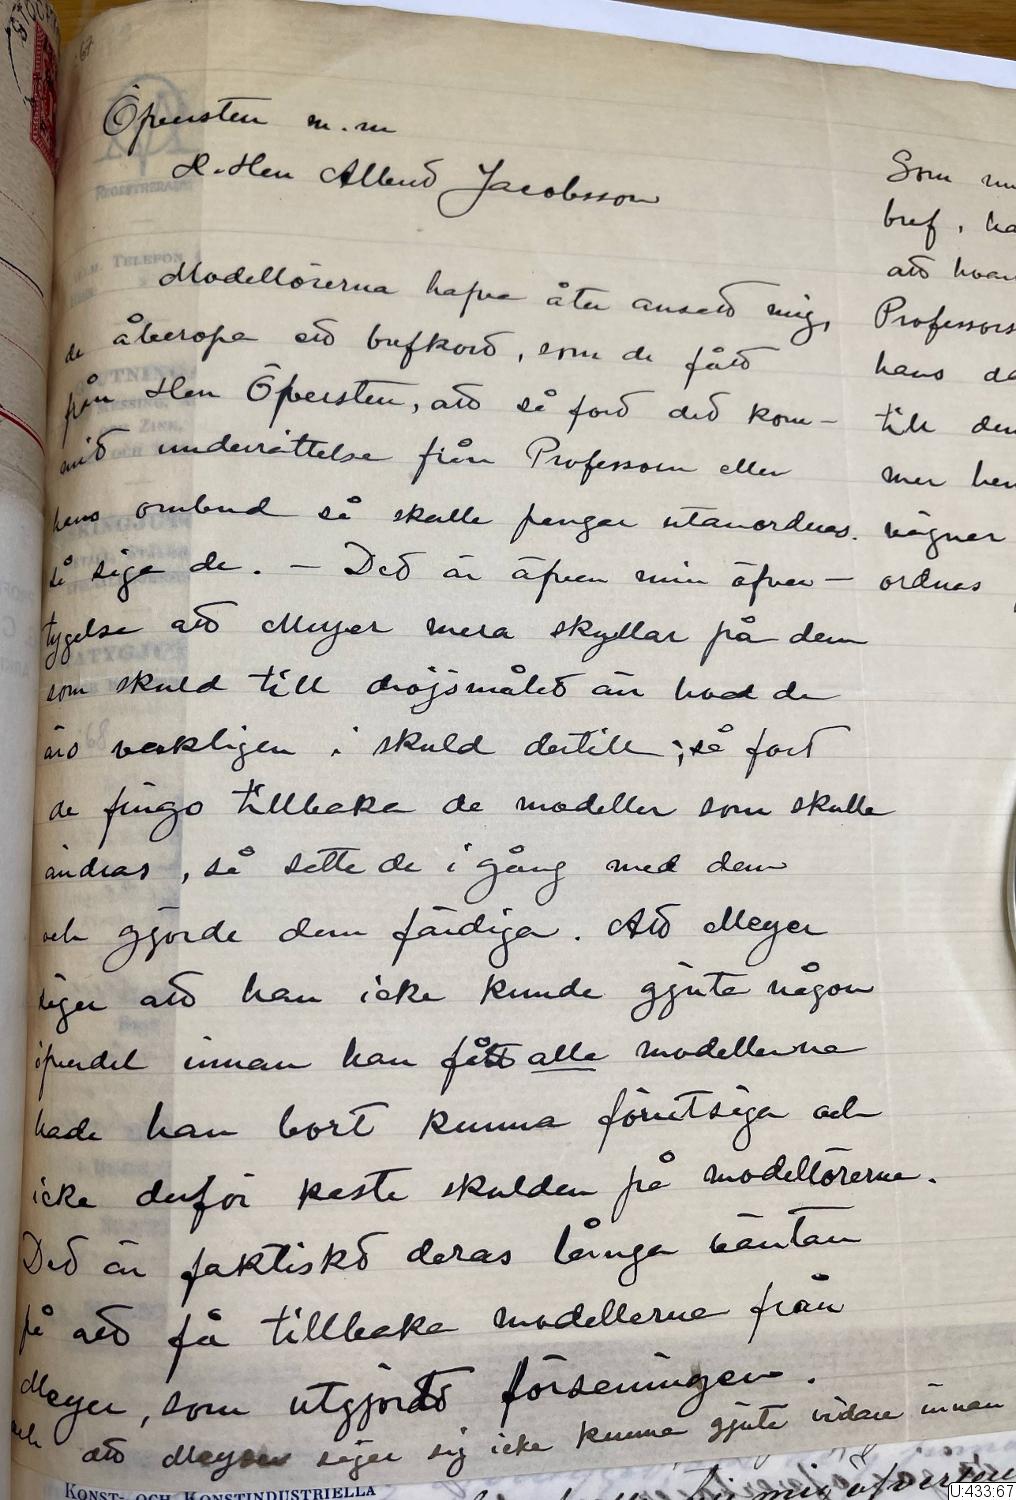 Öfversten m.m
H. Herr Albert Jacobsson
Modellörerna hafva åter ansatt mig,
de åberopa ett brefkort, som de fått
från Herr Öfversten, att så fort det kom-
mit underrättelse från Professorn eller
hans ombud så skulle pengar utanordnas.
så säga de. – Det är äfven min öfver-
tygelse att Meyer mera skyllar på dem
som skuld till dröjsmålet än hvad de
äro verkligen i skuld dertill; så fort
de fingo tillbaka de modeller som skulle
ändras, så satte de i gång med dem
och gjorde dem färdiga. Att Meyer
säger att han icke kunde gjuta någon
öfverdel innan han fått alla modellerna
hade han bort kunna förutsäga och
icke derför kasta skulden på modellörerna.
Det är faktiskt deras långa väntan
på att få tillbaka modellerna från
Meyer, som utgjordt förseningen.
och att Meyer säger sig icke kunna gjuta vidare innan
Som
bref, ha
att hvar
Professors
hans
till den
mer her
vägnar
ordnas
TELEFON
ZINK,
KONST- OCH KONSTINDUSTRIELLA
U:433:67